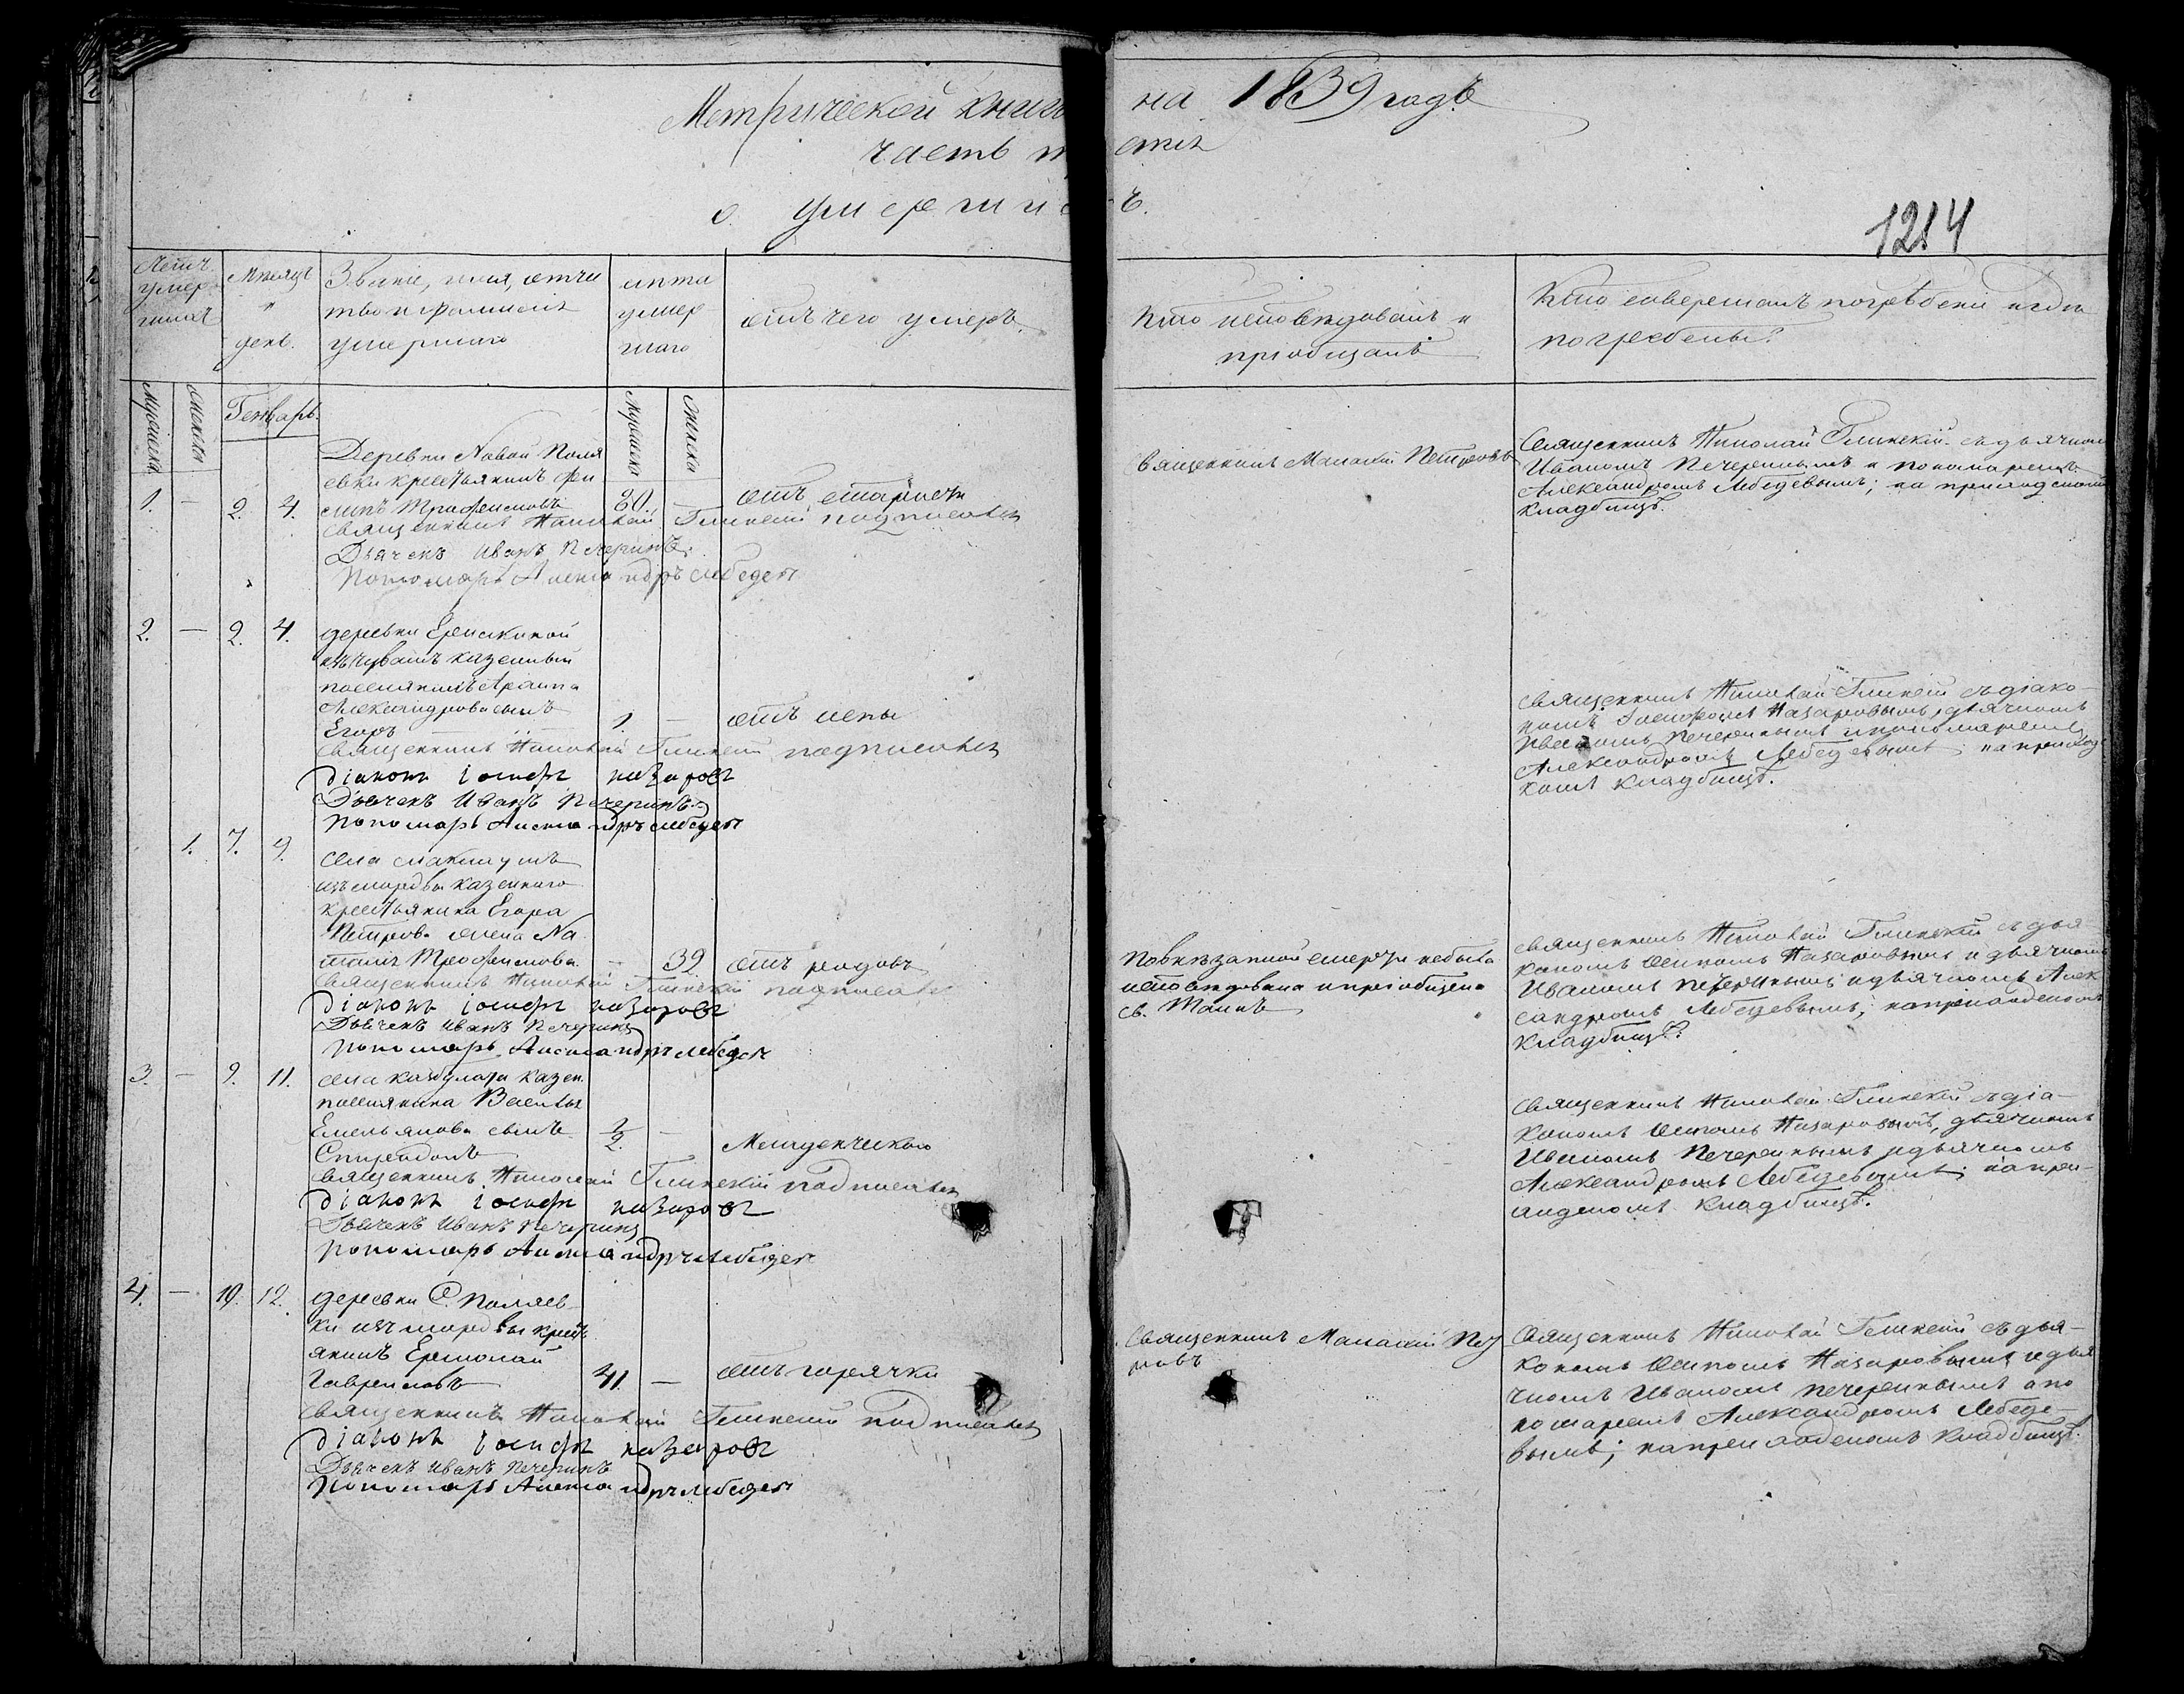 Метрической книги
часть т
о умерши
на 1839 годъ
етія
ъ.
1214
Счетъ умершихъ
Мѣсяцъ и день.
Званіе, имя, отчество и фамилія умершаго
лѣта умершаго
отъ чего умеръ.
Кто исповѣдовалъ и
пріобщалъ
Кто совершалъ погребеніе и гдѣ
погребены?
Мужеска
Женска
Генварь.
Мужеска
Женска
1. — 2. 4.
Деревни Новой Поля
евки крестьянинъ Фи
липъ Трофимовъ 80. — отъ старости
Священникъ Николай Глинскій подписался
Дьячекъ Иванъ Печеринъ.
Пономарь Александръ Лебедевъ
Священникъ Манасій Петровъ
Священникъ Николай Глинскій съ дьячкомъ
Иваномъ Печеринымъ и пономаремъ
Александромъ Лебедевымъ; на приходскомъ
кладбищѣ.
2. — 2. 4.
деревни Ерыклиной
изъ чувашъ казенный
поселянинъ Архипа
Александрова сынъ
Егоръ 1. — отъ оспы
Священникъ Николай Глинскій подписался
Діаконъ Іосифъ Назаровъ
Дьячекъ Иванъ Печеринъ.
Пономарь Александръ Лебедевъ
Священникъ Николай Глинскій съ діако-
номъ Іосифомъ Назаровымъ, дьячкомъ
Иваномъ Печеринымъ и пономаремъ
Александромъ Лебедевымъ; на приход
комъ кладбищѣ.
1. 7. 9.
села
изъ мордвы казеннаго
крестьянина Егора
Петрова жена На
талія Трофимова. — 39. отъ родовъ
Священникъ Николай Глинскій подписался
Діаконъ Іосифъ Назаровъ
Дьячекъ Иванъ Печеринъ
Пономарь Александръ Лебедевъ
По внезапной смерти не была
исповѣдована и пріобщена
св. Таинъ
Священникъ Николай Глинскій съ дья-
кономъ Осипомъ Назаровымъ и дьячкомъ
Иваномъ Печеринымъ и дьячкомъ Алек
сандромъ Лебедевымъ; на приходскомъ
кладбищѣ.
3. — 9. 11.
села казен.
поселянина Василья
Емельянова сынъ 1/2. — Младенческою
Спиридонъ
Священникъ Николай Глинскій подписался
Діаконъ Іосифъ Назаровъ
Дьячекъ Иванъ Печеринъ
Пономарь Александръ Лебедевъ
Священникъ Николай Глинскій съ діа-
кономъ Осипомъ Назаровымъ, дьячкомъ
Иваномъ Печеринымъ и дьячкомъ
Александромъ Лебедевымъ; на при-
ходскомъ кладбищѣ.
4. — 10. 12.
деревни С. Поляев-
ки изъ мордвы кресть
янинъ Ермолай
Гавриловъ 41. — отъ горячки
Священникъ Николай Глинскій подписался
Діаконъ Іосифъ Назаровъ
Дьячекъ Иванъ Печеринъ
Пономарь Александръ Лебедевъ
Священникъ Манасій Пет
ровъ
Священникъ Николай Глинскій съ дья-
кономъ Осипомъ Назаровымъ и дья
чкомъ Иваномъ Печеринымъ и по
номаремъ Александромъ Лебеде-
вымъ; на приходскомъ кладбищѣ.